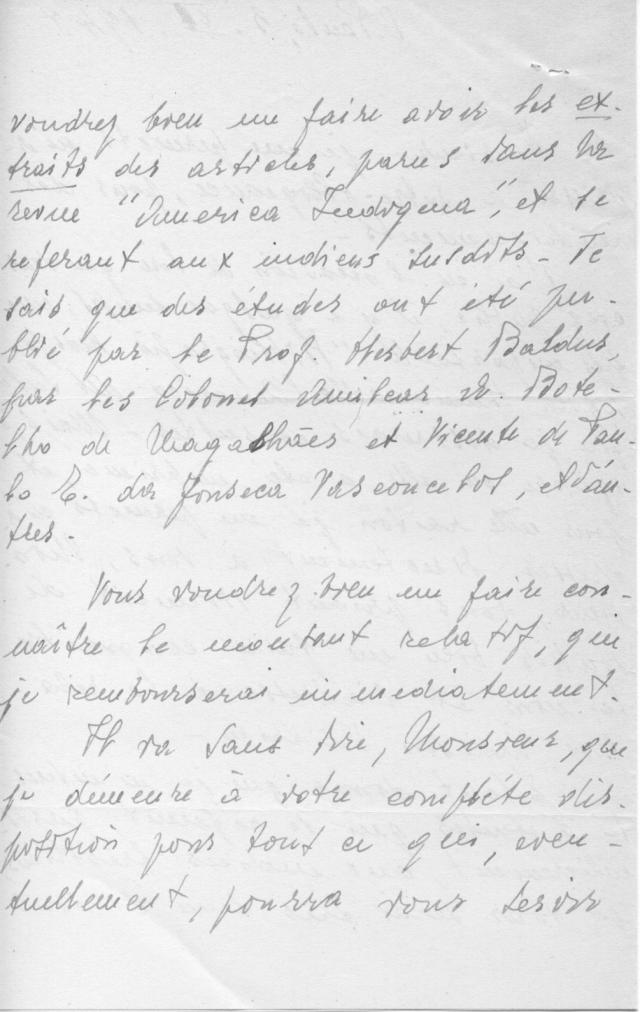 voudrez bien me faire avoir les ex-
traits des articles, parus dans la
revue "America Indigena", et se
referant aux indiens susdits - Je
sais que des études ont été pu-
blié par le Prof. Herbert Baldus,
par les Colonel Amilcar A. Bote-
lho de Magalhães et Vicente de Pau-
lo T. da Fonseca Vasconcelos, et d'au-
tres.
Vous voudrez bien me faire con-
naître le montant relatif, que
je rembourserai immediatement.
Il va sans dire, Monsieur, que
je démeure à votre complète dis-
position pour tout ce qui, even-
tuellement, pourra vous servir